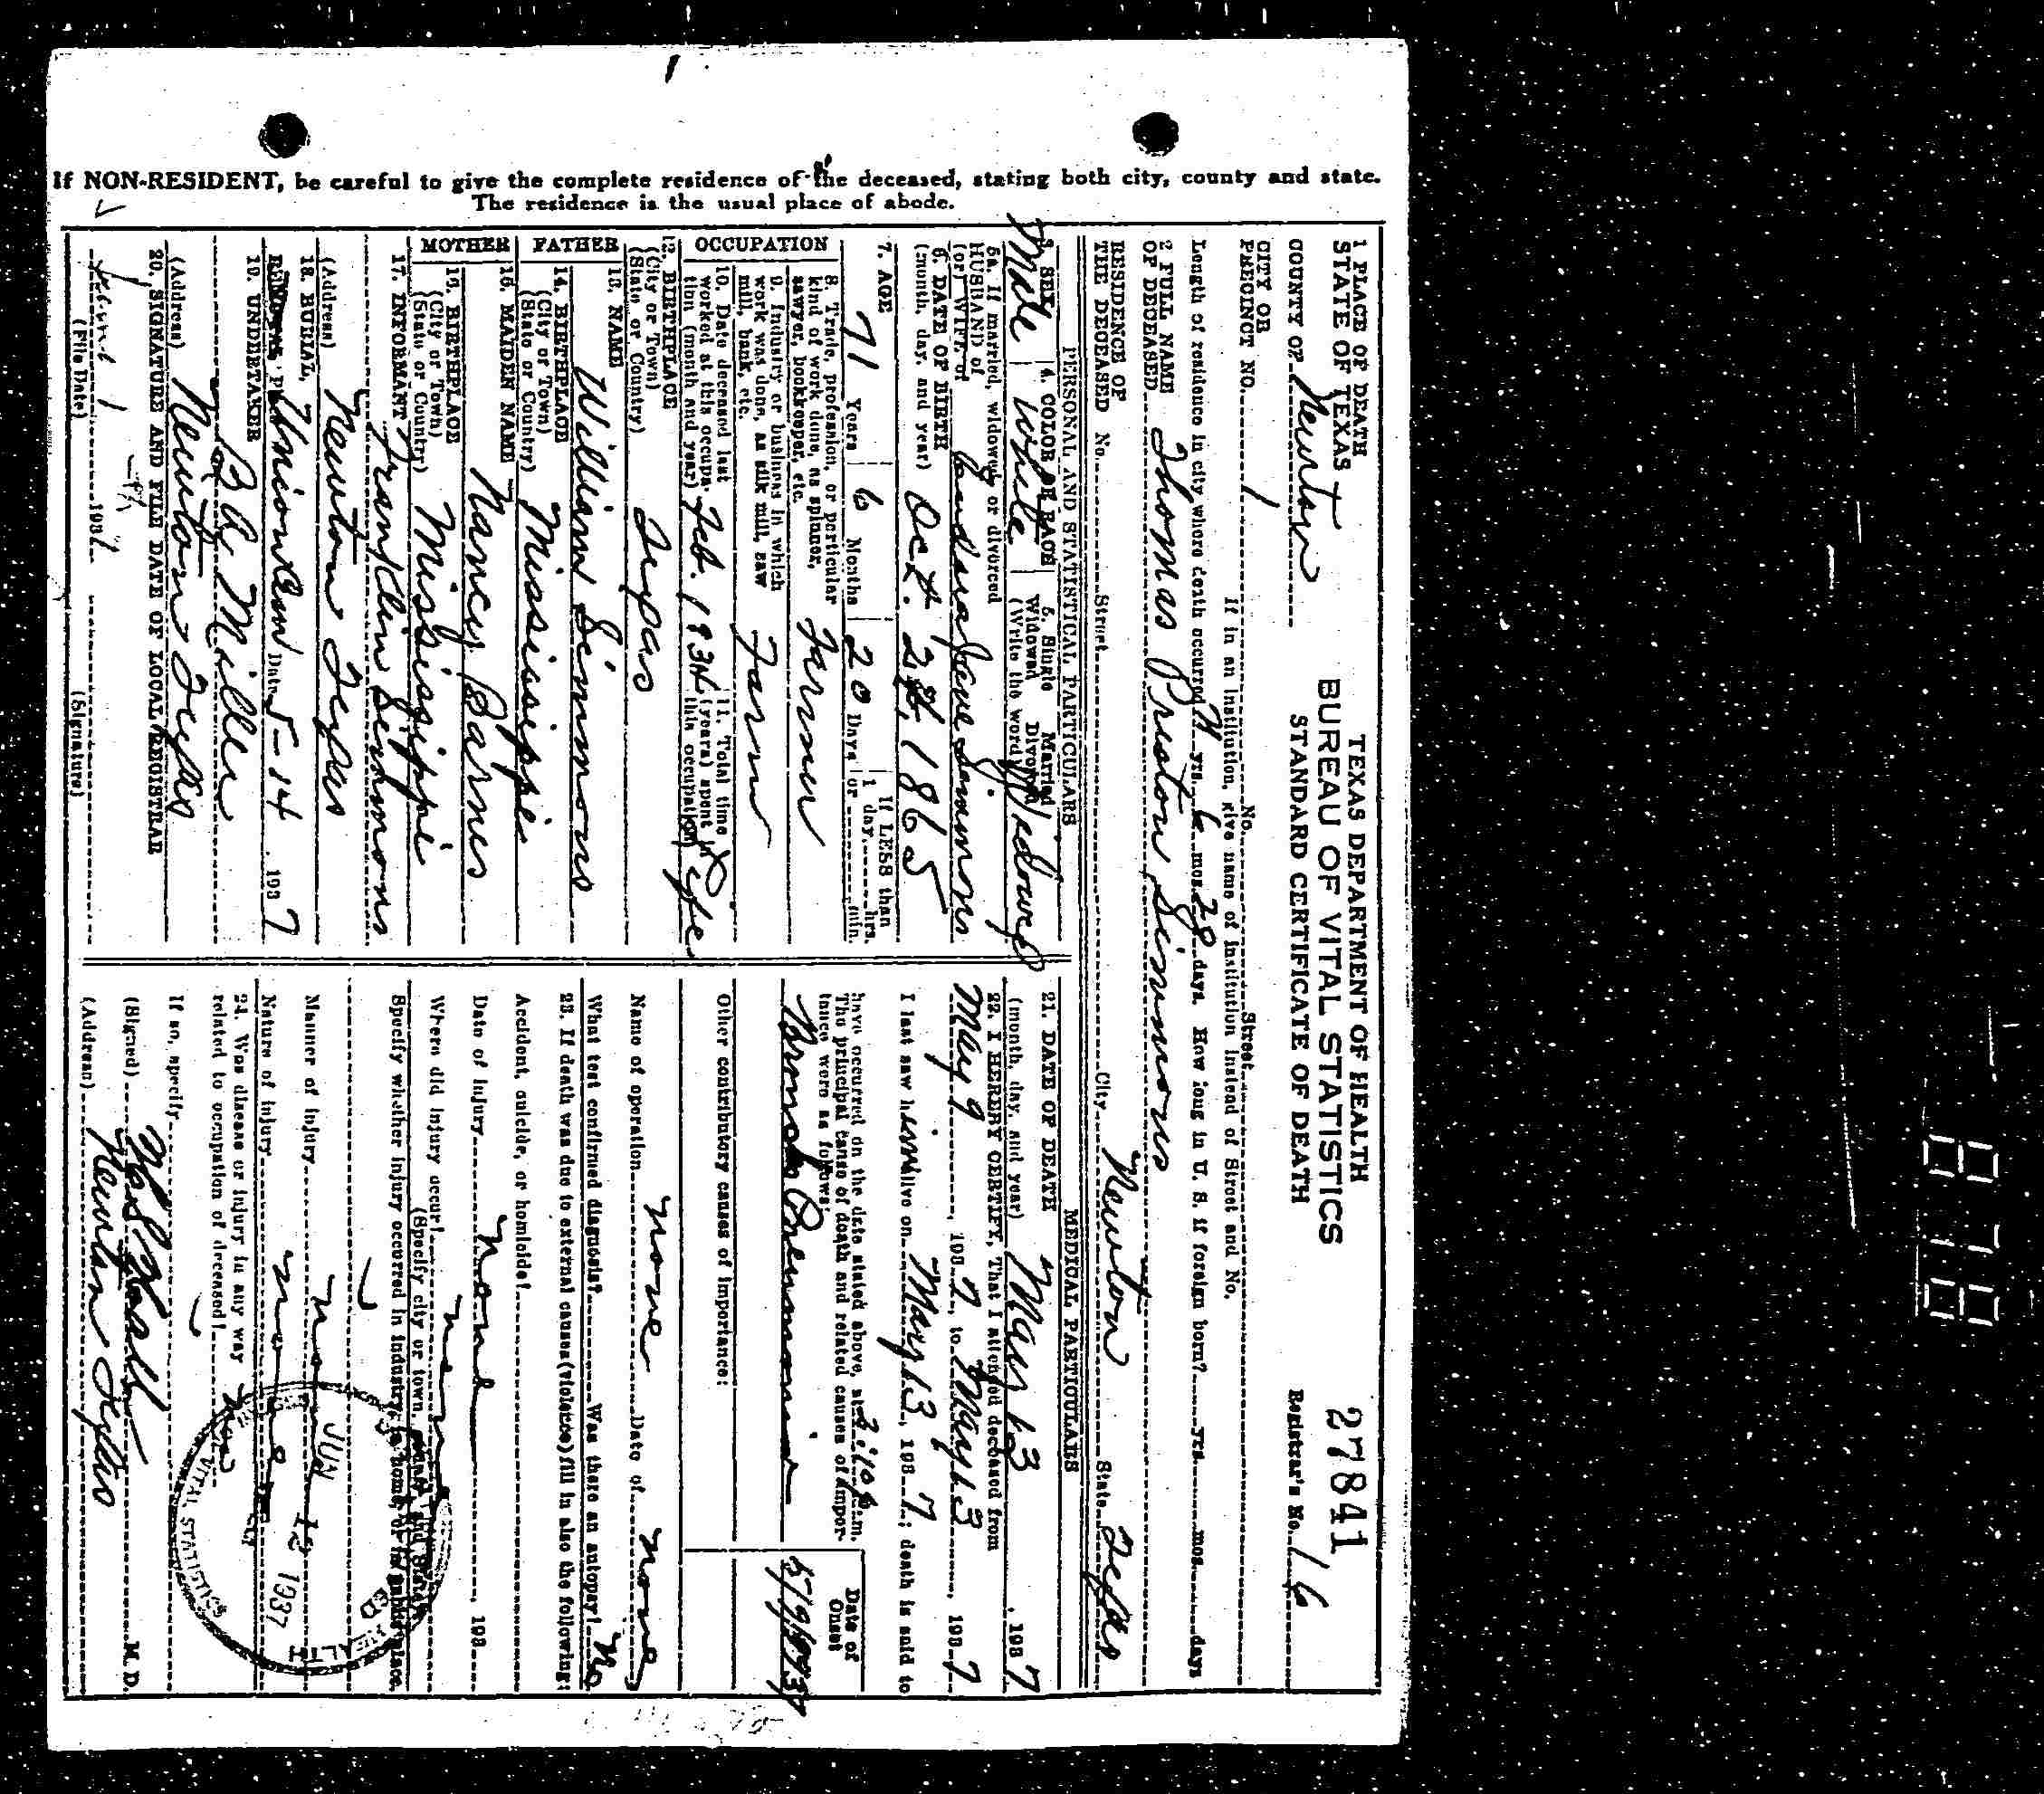 If NON-RESIDENT, be careful to give the complete residence of the deceased, stating both city, county and state.
The residence is the usual place of abode.
TEXAS DEPARTMENT OF HEALTH
BUREAU OF VITAL STATISTICS
STANDARD CERTIFICATE OF DEATH
27841
Registrar's No. 16
1 PLACE OF DEATH
STATE OF TEXAS
COUNTY OF Newton
CITY OR
PRECINCT NO. 1 No. Street
If in an institution, give name of institution instead of Street and No.
Length of residence in city where death occurred 71 yrs. 6 mos. 28 days. How long in U. S. if foreign born? yrs. mos. days
2 FULL NAME
OF DECEASED Thomas Preston Simmons
RESIDENCE OF
THE DECEASED No. Street City Newton State Texas
PERSONAL AND STATISTICAL PARTICULARS
3. SEX Male 4. COLOR OR RACE White 5. Single Married
Widowed Divorced
(Write the word) Widowed
5a. If married, widowed, or divorced
HUSBAND of
(or) WIFE of Jane Simmons
6. DATE OF BIRTH
(month, day, and year) Oct. 1865
7. AGE 71 Years 6 Months 20 Days If LESS than
1 day, hrs.
or min.
OCCUPATION
8. Trade, profession, or particular
kind of work done, as spinner,
sawyer, bookkeeper, etc. Farmer
9. Industry or business in which
work was done, as silk mill, saw
mill, bank, etc. Farm
10. Date deceased last
worked at this occupa-
tion (month and year) Feb. 193
11. Total time
(years) spent in
this occupation Life
12. BIRTHPLACE
(City or Town)
(State or Country) Texas
FATHER
13. NAME William Simmons
14. BIRTHPLACE
(City or Town)
(State or Country) Mississippi
MOTHER
15. MAIDEN NAME Nancy Barnes
16. BIRTHPLACE
(City or Town)
(State or Country) Mississippi
17. INFORMANT Franklin Simmons
(Address) Newton Texas
18. BURIAL,
Unionlem Date 5-14, 1937
19. UNDERTAKER B A Miller
(Address) Newton Texas
20. SIGNATURE AND FILE DATE OF LOCAL REGISTRAR
June 1 193
(File Date) (Signature)
MEDICAL PARTICULARS
21. DATE OF DEATH
(month, day, and year) May 13, 1937
22. I HEREBY CERTIFY, That I attended deceased from
May 9, 1937, to May 13, 1937
I last saw him alive on May 13, 1937; death is said to
have occurred on the date stated above, at 2:10 p.m.
The principal cause of death and related causes of impor-
tance were as follows:
Date of
Onset
Broncho Pneumonia 5/9/1937
Other contributory causes of importance:
Name of operation none Date of none
What test confirmed diagnosis? Was there an autopsy? No
23. If death was due to external causes (violence) fill in also the following:
Accident, suicide, or homicide?
Date of injury None, 193
Where did injury occur? none
(Specify city or town, county and State)
Specify whether injury occurred in industry, in home, or in public place.
Manner of injury none
Nature of injury none
24. Was disease or injury in any way
related to occupation of deceased?
If so, specify
(Signed) M. D.
(Address) Newton Texas
JUN 12 1937
VITAL STATISTICS